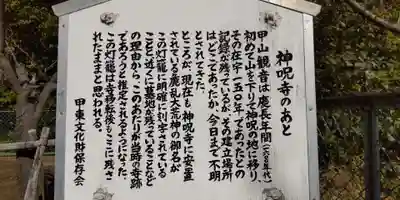 神呪寺のあと
甲山観音は慶長年間(一六〇〇年代)
初めて山を下りて神呪の地に移り、
その在字一五〇年であったとの
記録が残っているが、その建立場所
はどこであったか、今日まで不明
とされてきた。
ところが、現在も神呪寺に安置
されている鹿乱大荒神の御名が
この灯籠に明確に刻字されている
ことと近くに墓地が残っていることなど
の理由から、このあたりが当時の寺跡
であろうと推定されるようになった。
この灯籠は寺移転後もここに残さ
れたままと思われる。
甲東文化財保存会